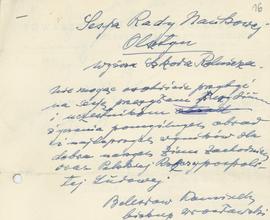 16
Sesja Rady Naukowej
Olsztyn
Wyższa Szkoła Rolnicza
Nie mogąc osobiście przybyć
na Sesję przesyłam Prezydium
i uczestnikom
życzenia pomyślnych obrad
i najlepszych wyników dla
dobra naszych Ziem Zachodnich
oraz Polskiej Rzeczypospoli-
tej Ludowej.
Bolesław
biskup wrocławski